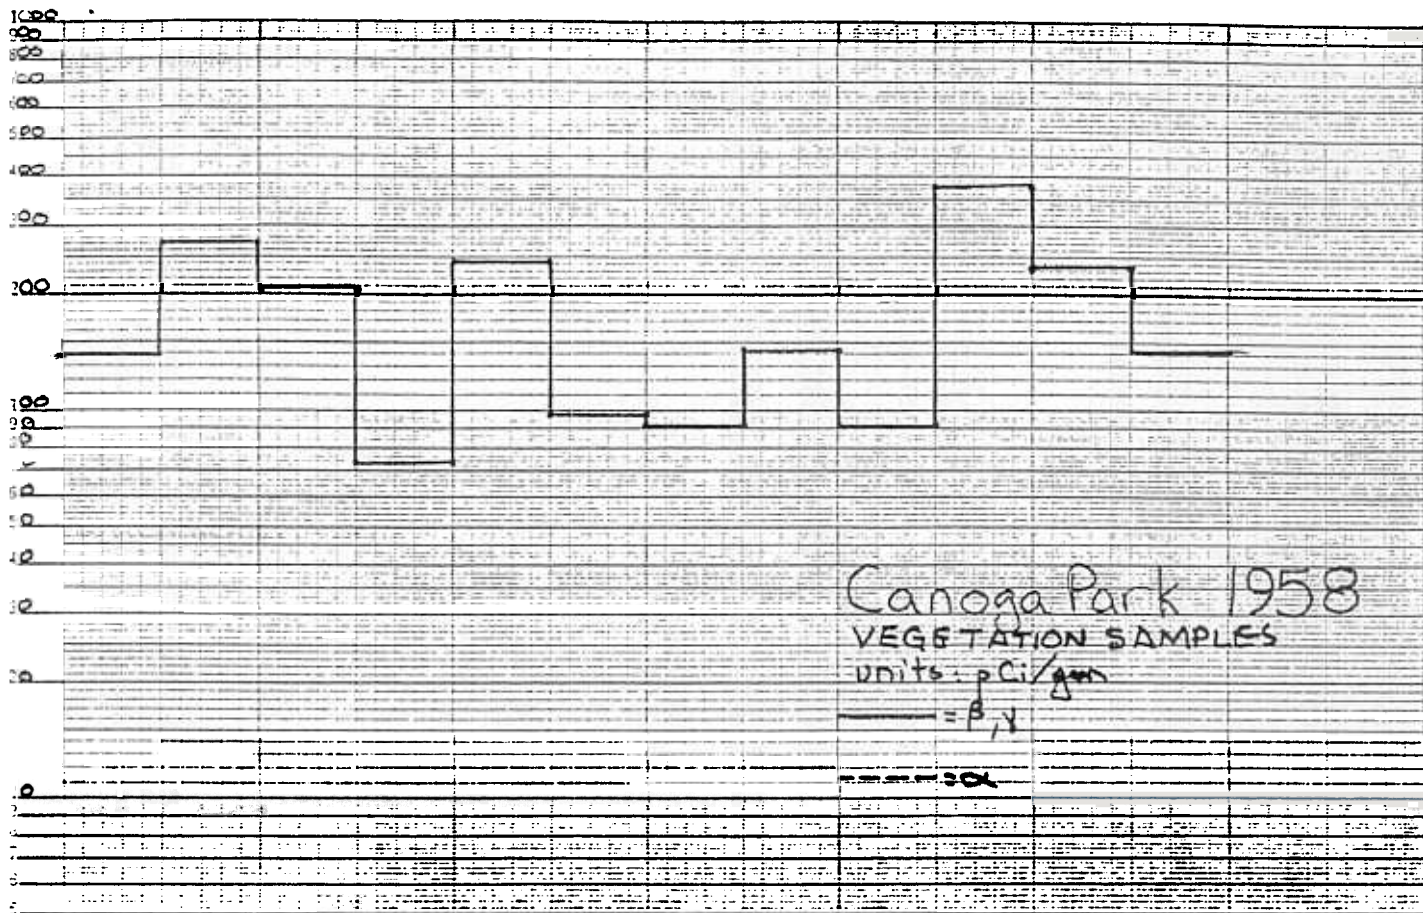 1000
900
800
600
500
400
200
100
90
50
40
30
20
Canoga Park 1958
VEGETATION SAMPLES
units: pCi/gm
= β, γ
= α